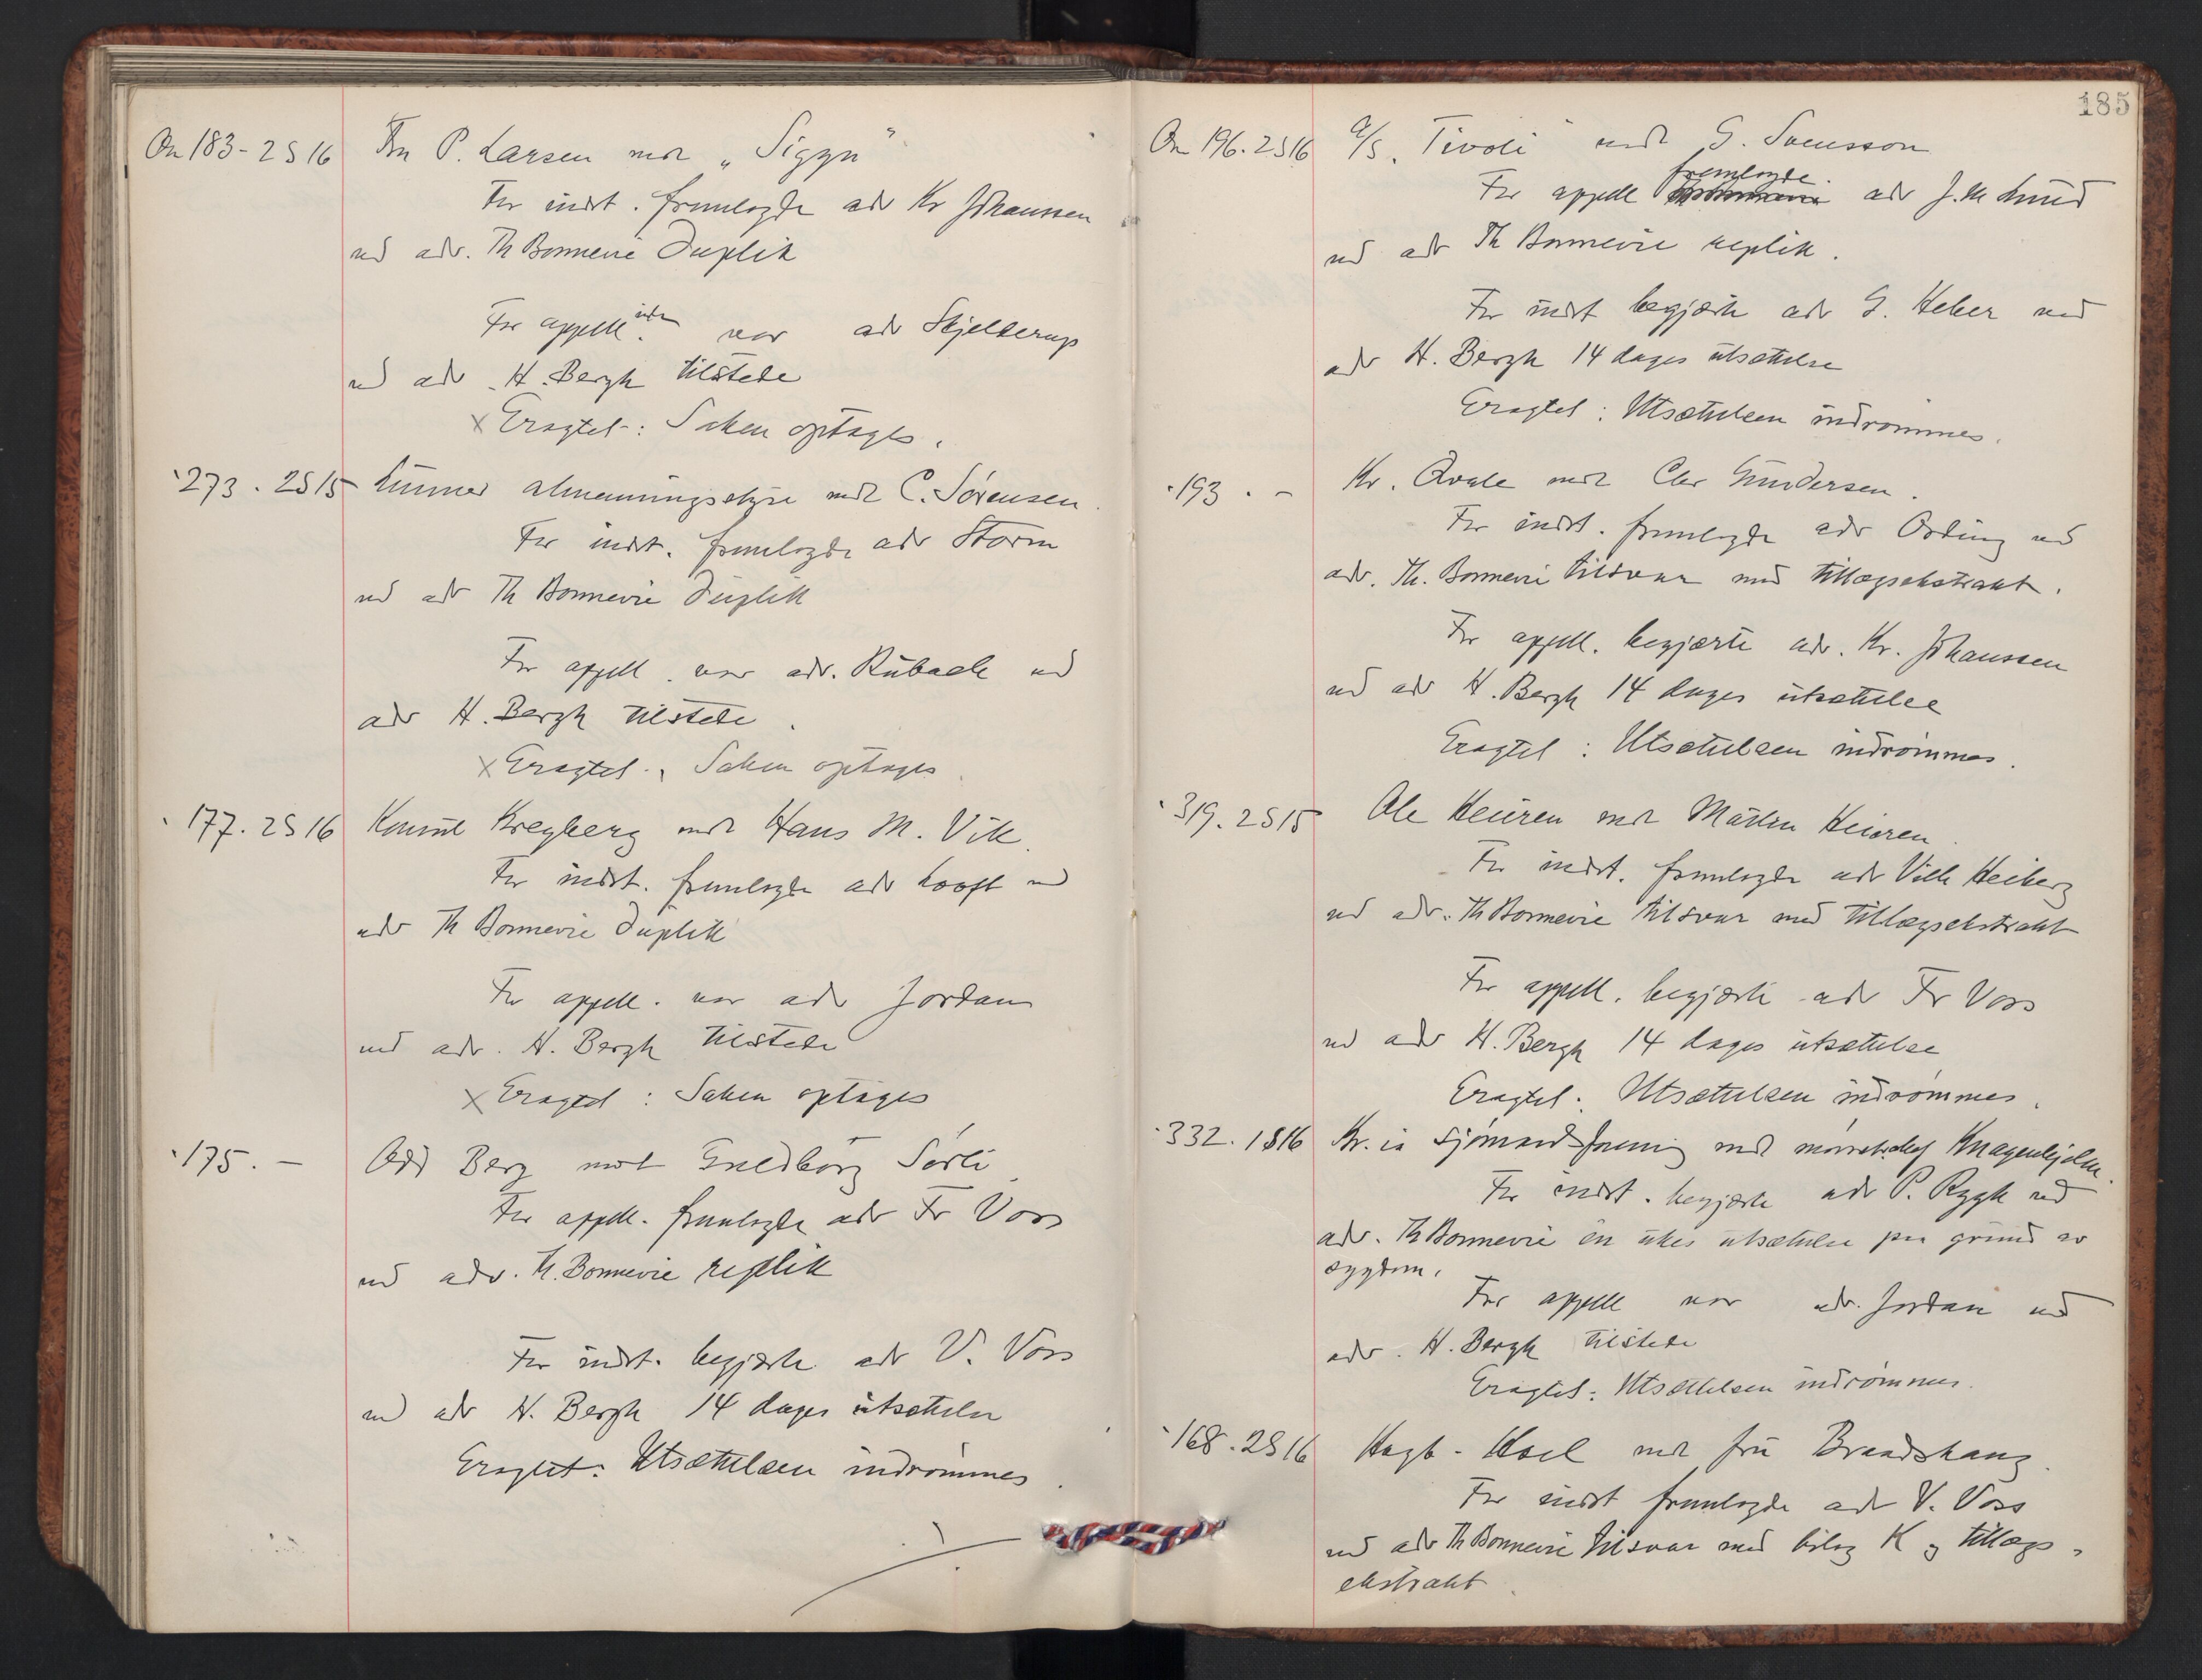 On 183 - 2 S 16 Fru P. Larsen mot „Sigyn"
For indst. fremlagde adv Kr Johanssen
ved adv. Th Bonnevie Duplik
For appell. var adv Skjelderup
ved adv. H. Bergh tilstede
x Eragtet: Saken optages.
273. 2S15 Lunner almenningsstyre mot C. Sørensen.
For indst. fremlagde adv Storm
ved adv Th Bonnevie Duplik
For appell. var adv. Rubach ved
adv H. Bergh tilstede.
x Eragtet: Saken optages
177. 2S16 Konsul Kreyberg mot Hans M. Vik.
For indst. fremlagde adv Looft ved
adv Th Bonnevie Duplik
For appell. var adv Jordan
ved adv. H. Bergh tilstede
x Eragtet: Saken optages
175. — Odd Berg mot Guldborg Sørli
For appell. fremlagde adv Fr Voss
ved adv. Th. Bonnevie replik
For indst. begjærte adv V. Voss
ved adv H. Bergh 14 dages utsættelse
Eragtet: Utsættelsen indrømmes.
185
On 196. 2S16 A/S „Tivoli" mot G. Svensson
fremlagde
For appell adv J. M Lund
ved adv Th Bonnevie replik.
For indst begjærte adv G. Heber ved
adv H. Bergh 14 dages utsættelse
Eragtet: Utsættelsen indrømmes.
193. — Kr. Qvale mot Chr Gundersen.
For indst. fremlagde adv Ording ved
adv. Th. Bonnevie tilsvar med tillægsekstrakt.
For appell. begjærte adv. Kr. Johanssen
ved adv H. Bergh 14 dages utsættelse
Eragtet: Utsættelsen indrømmes.
319. 2S15 Ole Heieren mot Martin Heieren.
For indst. fremlagde adv Vilh Heiberg
ved adv. Th Bonnevie tilsvar med tillægsekstrakt
For appell. begjærte adv Fr Voss
ved adv H. Bergh 14 dages utsættelse
Eragtet: Utsættelsen indrømmes.
332. 1S16 Kr.ia Sjømandsforening mot Knagenhjelm.
For indst. begjærte adv P. Rygh ved
adv. Th Bonnevie en ukes utsættelse paa grund av
sygdom.
For appell var adv. Jordan ved
adv. H. Bergh tilstede
Eragtet: Utsættelsen indrømmes.
168. 2S16 Hagb. Hoel mot fru Brandshaug.
For indst fremlagde adv V. Voss
ved adv Th Bonnevie tilsvar med bilag K og tillægs-
ekstrakt.